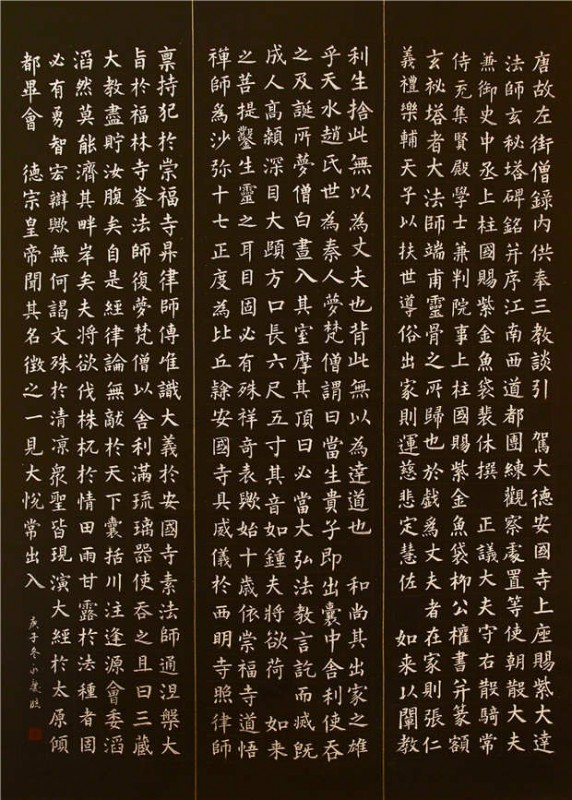 唐故左街僧錄内供奉三教談引 駕大德安國寺上座賜紫大達
法師玄秘塔碑銘并序江南西道都團練觀察處置等使朝散大夫
兼御史中丞上柱國賜紫金魚袋裴休撰 正議大夫守右散騎常
侍充集賢殿學士兼判院事上柱國賜紫金魚袋柳公權書并篆額
玄秘塔者大法師端甫靈骨之所歸也於戲為丈夫者在家則張仁
義禮樂輔天子以扶世導俗出家則運慈悲定慧佐 如來以闡教
利生捨此無以為丈夫也背此無以為達道也 和尚其出家之雄
乎天水趙氏世為秦人夢梵僧謂曰當生貴子即出囊中舍利使吞
之及誕所夢僧白晝入其室摩其頂曰必當大弘法教言訖而滅既
成人高顙深目大頤方口長六尺五寸其音如鍾夫將欲荷 如来
之菩提鑿生靈之耳目固必有殊祥奇表歟始十歲依崇福寺道悟
禪師為沙弥十七正度為比丘隸安國寺具威儀於西明寺照律師
禀持犯於崇福寺昇律師傳唯識大義於安國寺素法師通涅槃大
旨於福林寺崟法師復夢梵僧以舍利滿琉璃器使吞之且曰三藏
大教盡貯汝腹矣自是經律論無敵於天下囊括川注逢源會委滔
滔然莫能濟其畔岸矣夫將欲伐株杌於情田雨甘露於法種者固
必有勇智宏辯歟無何謁文殊於清凉衆聖皆現演大經於太原傾
都畢會 德宗皇帝聞其名徵之一見大悅常出入
庚子冬